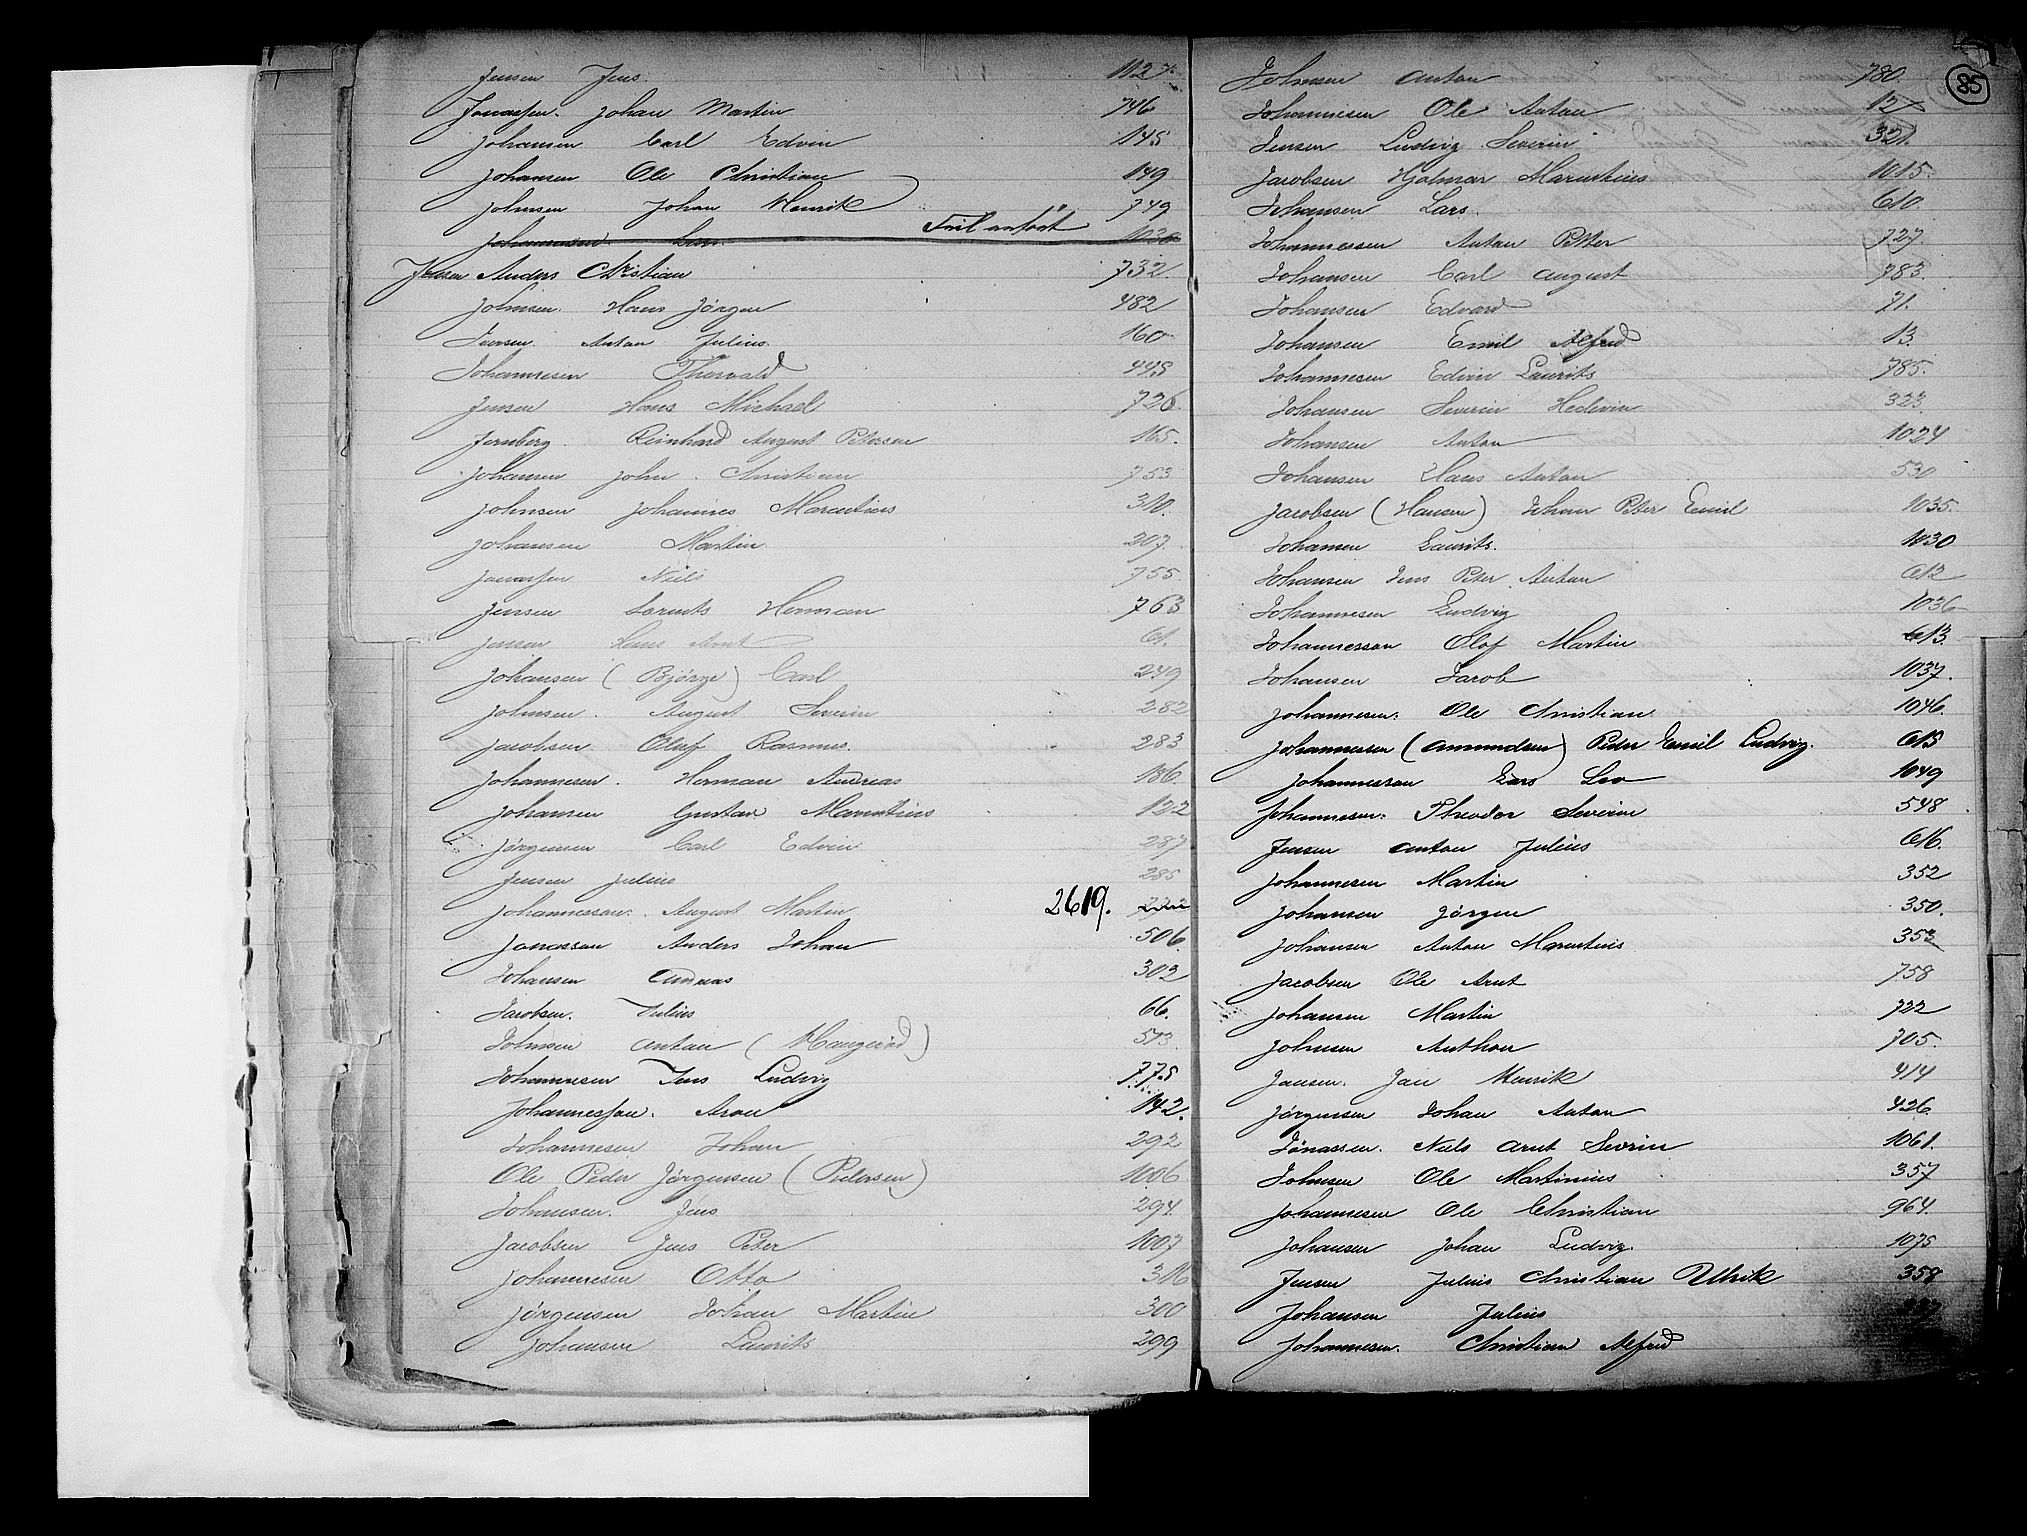 Jensen Jens. 1127.
Jonassen. Johan Martin 746
Johansen Carl Edvin 145
Johansen Ole Christian 149
Johnsen Johan Henrik 749
Johannesen Lars. Feil anført 1030
Jensen Anders Christian 732.
Johnsen. Hans Jørgen 482
Iversen. Anton Julius. 160
Johannesen Thorvald 445
Jensen Hans Michael 726.
Jernberg. Reinhard August Petersen 165.
Johansen John. Christian 753
Johnsen Johannes Marentius 310.
Johansen Martin. 207.
Jonassen Nils 755.
Jensen Laurits Herman 763
Jensen Hans Arnt 61.
Johansen (Bjørge) Carl 249
Johnsen. August Severin 282
Jacobsen Oluf Rasmus. 283
Johannesen. Herman Andreas 186
Johansen Gustav Marentius 122
Jørgensen Carl Edvin 287
Jensen Julius 285
Johannessen. August Martin 2619.
Jonassen Anders Johan 506.
Johansen Andreas 302
Jacobsen. Julius 66.
Johnsen Anton (Haugerød) 513.
Johannesen Jens Ludvig 775
Johannessen. Aron 142.
Johannesen Johan 292
Ole Peder Jørgensen (Petersen) 1006
Johansen. Jens 294.
Jacobsen Jens Peter 1007
Johannesen Otto 316
Jørgensen Johan Martin 300
Johansen Laurits 299
85
Johnsen Anton 780.
Johannesen Ole Anton 12
Jensen Ludvig Severin 321.
Jacobsen Hjalmar Marentius 1015.
Johansen Lars. 610.
Johannessen Anton Petter 727.
Johansen Carl August 783.
Johansen Edvard 71.
Johansen Emil Alfred 13.
Johannesen Edvin Laurits 785.
Johansen Severin Hedevin 323.
Johansen Anton 1024
Johansen Hans Anton 530
Jacobsen (Hansen) Johan Peter Emil 1035.
Johansen Laurits. 1030
Johansen Jens Peter Anton 612
Johannesen Ludvig 1036
Johannessen Olof Martin 613.
Johansen Jacob 1037.
Johannesen. Ole Christian. 1046.
Johannesen (Amundsen) Peder Emil Ludvig. 615
Johannessen Lars Leo 1049
Johannesen. Theodor Severin 548
Jensen Anton Julius 616.
Johannesen Martin 352
Johansen Jørgen 350.
Johansen Anton Marentius 353
Jacobsen Ole Arnt 758
Johansen Martin 722
Johnsen Anthon 705.
Jansen. Jan Henrik 414
Jørgensen Johan Anton 426.
Jonassen. Nils Arnt Sevrin 1061.
Johnsen Ole Martinius 357
Johannesen Ole Christian 964.
Johansen Johan Ludvig. 1075
Jensen Julius Christian Ulrik 358
Johansen Julius
Johannesen. Christian Alfred